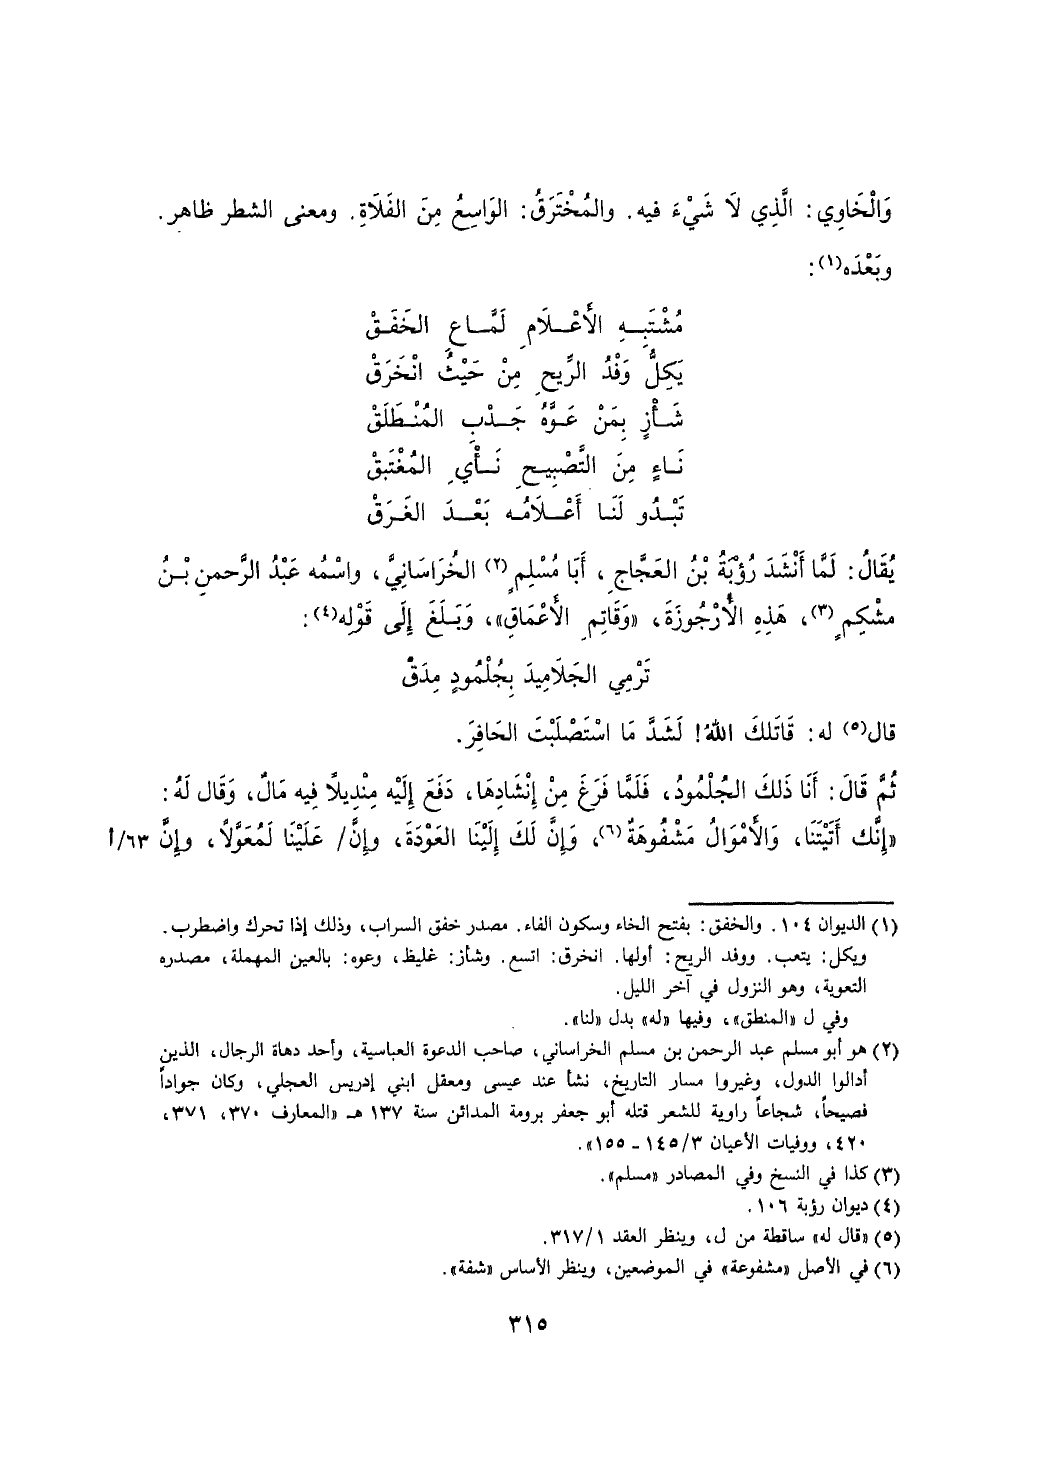 وَالْخَاوِي: الَّذِي لَا شَيْءَ فيه. والمُخْتَرَقُ: الوَاسِعُ مِنَ الفَلَاةِ. ومعنى الشطر ظاهر.
وبَعْدَه(١):
مُشْتَبِهِ الأَعْلَامِ لَمَّاعِ الخَفَقْ
يَكِلُّ وَفْدُ الرِّيحِ مِنْ حَيْثُ انْخَرَقْ
شَأْزٍ بِمَنْ عَوَّهُ جَدْبِ المُنْطَلَقْ
نَاءٍ مِنَ التَّصْبِيحِ نَأْيِ المُغْتَبَقْ
تَبْدُو لَنَا أَعْلَامُه بَعْدَ الغَرَقْ
يُقَالُ: لَمَّا أَنْشَدَ رُؤْبَةُ بْنُ العَجَّاجِ، أَبَا مُسْلِمٍ(٢) الخُرَاسَانِيَّ، واسْمُه عَبْدُ الرَّحمنِ بْنُ
مشْكِمٍ(٣)، هَذِهِ الأُرْجُوزَةَ، «وَقَاتِمِ الأَعْمَاقِ»، وَبَلَغَ إِلَى قَوْلِه(٤):
تَرْمِي الجَلَامِيدَ بِجُلْمُودٍ مِدَقّْ
قال(٥) له: قَاتَلكَ اللهُ! لَشَدَّ مَا اسْتَصْلَبْتَ الحَافِرَ.
ثُمَّ قَالَ: أَنَا ذَلكَ الجُلْمُودُ، فَلَمَّا فَرَغَ مِنْ إِنْشَادِهَا، دَفَعَ إِلَيْه مِنْدِيلًا فِيه مَالٌ، وَقَال لَهُ:
«إِنَّك أَتَيْتَنَا، وَالأَمْوَالُ مَشْفُوهَةٌ(٦)، وَإِنَّ لَكَ إِلَيْنَا العَوْدَةَ، وإِنَّ/ عَلَيْنَا لَمُعَوَّلاً، وإِنَّ ٦٣/أ
(١) الديوان ١٠٤. والخفق: بفتح الخاء وسكون الفاء. مصدر خفق السراب، وذلك إذا تحرك واضطرب.
ويكل: يتعب. ووفد الريح: أولها. انخرق: اتسع. وشأز: غليظ، وعوه: بالعين المهملة، مصدره
التعوية، وهو النزول في آخر الليل.
وفي ل «المنطق»، وفيها «له» بدل «لنا».
(٢) هو أبو مسلم عبد الرحمن بن مسلم الخراساني، صاحب الدعوة العباسية، وأحد دهاة الرجال، الذين
أدالوا الدول، وغيروا مسار التاريخ، نشأ عند عيسى ومعقل ابني إدريس العجلي، وكان جواداً
فصيحاً، شجاعاً راوية للشعر قتله أبو جعفر برومة المدائن سنة ١٣٧ هـ «المعارف ٣٧٠، ٣٧١،
٤٢٠، ووفيات الأعيان ٣/١٤٥ - ١٥٥».
(٣) كذا في النسخ وفي المصادر «مسلم».
(٤) ديوان رؤبة ١٠٦.
(٥) «قال له» ساقطة من ل، وينظر العقد ١/٣١٧.
(٦) في الأصل «مشفوعة» في الموضعين، وينظر الأساس «شفة».
٣١٥